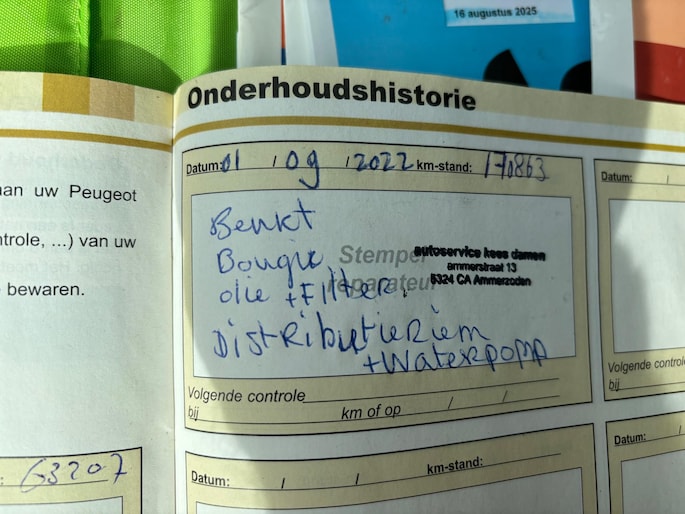 16 augustus 2025
aan uw Peugeot
ntrole, ...) van uw
bewaren.
: 63207
Onderhoudshistorie
Datum: 01 / 09 / 2022 km-stand: 170863
Stempel
reparateur
Beurt
Bougie
olie + Filter.
Distributieriem
+ Waterpomp
autoservice kees damen
ammerstraat 13
5324 CA Ammerzoden
Volgende controle
bij km of op / /
Datum: / / km-stand:
Datum: /
Volgende controle
bij
Datum: /